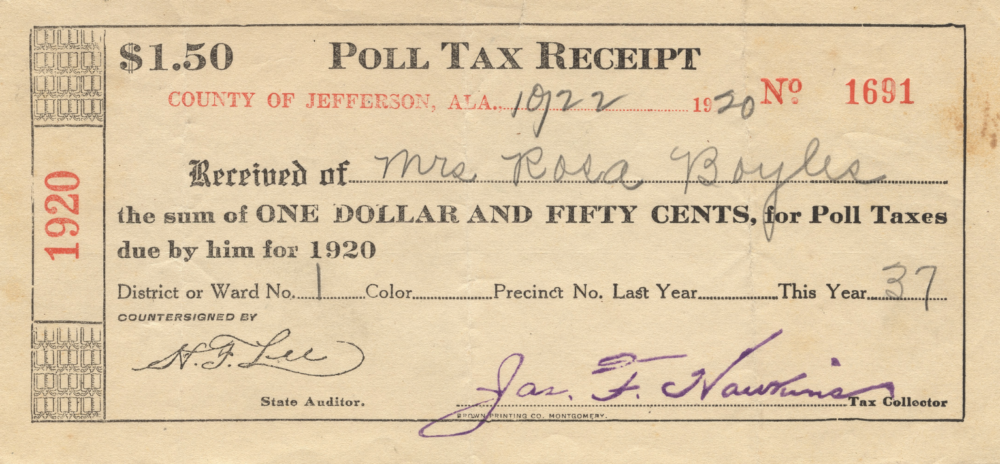 $1.50 POLL TAX RECEIPT
COUNTY OF JEFFERSON, ALA. 10/22 1920 Nº 1691
1920
Received of Mrs Rosa Boyles
the sum of ONE DOLLAR AND FIFTY CENTS, for Poll Taxes
due by him for 1920
District or Ward No. 1 Color Precinct No. Last Year This Year 37
COUNTERSIGNED BY
H. F. Lee
Jas. F. Hawkins
State Auditor. Tax Collector
BROWN PRINTING CO. MONTGOMERY.